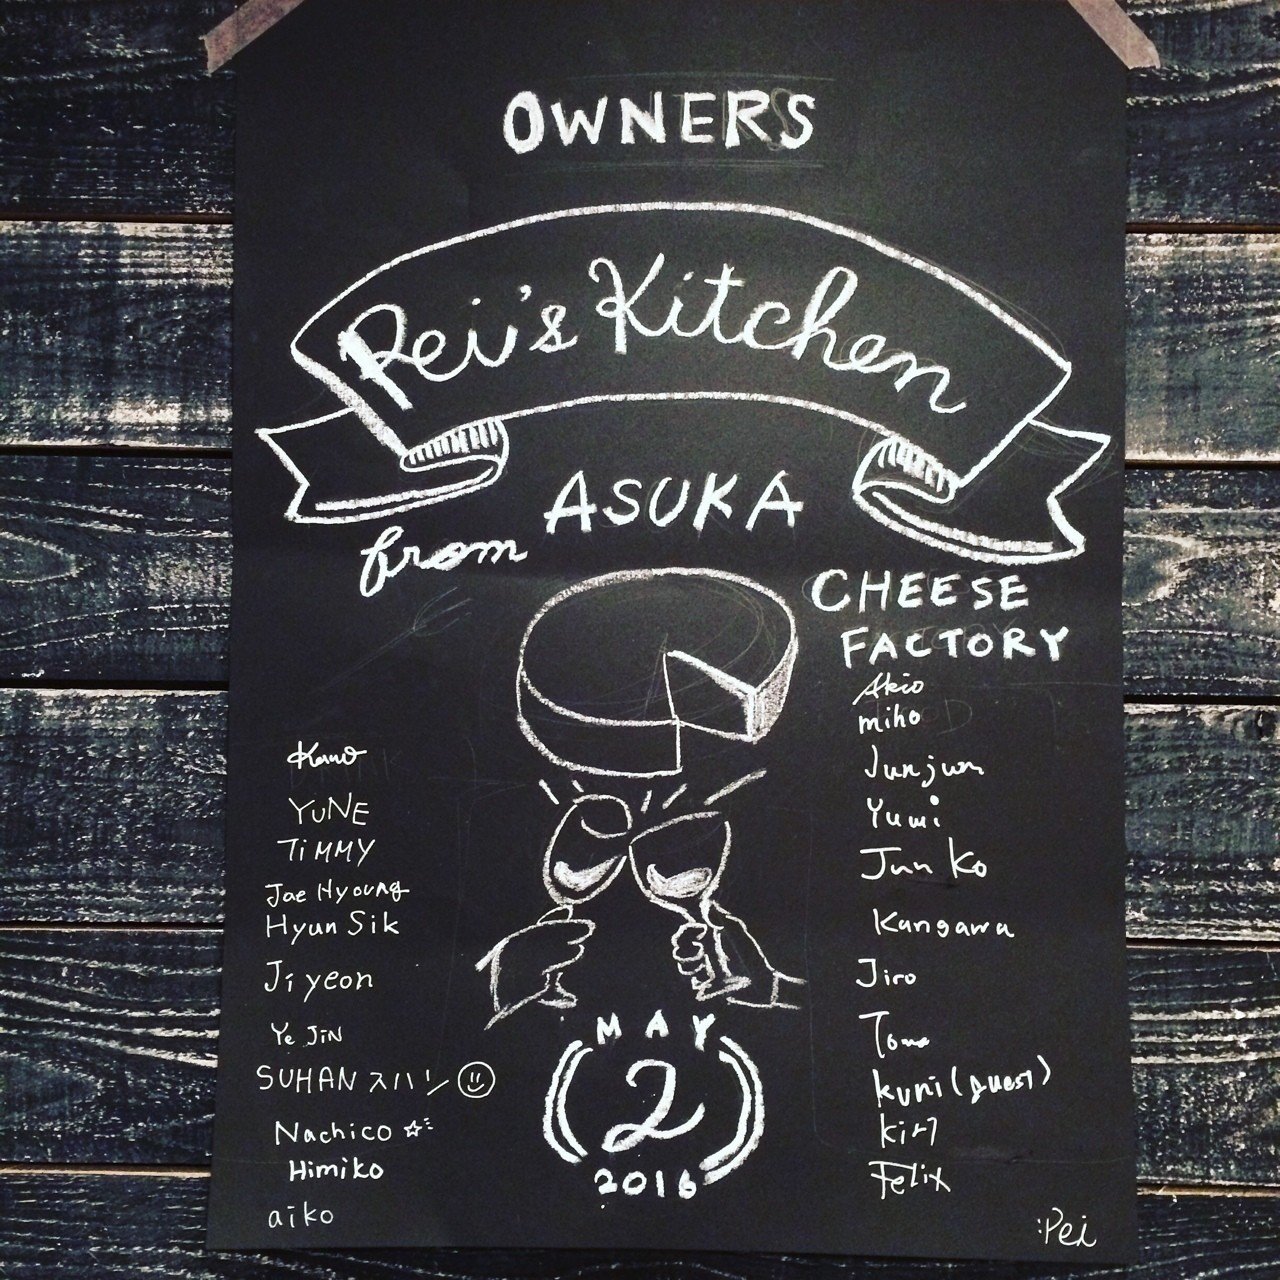 OWNERS
Pei's Kitchen
from ASUKA
CHEESE
FACTORY
Akio
miho
Junjun
Yumi
Junko
Kangawa
Jiro
Tomo
kuni (guest)
Felix
Kano
YUNE
TiMMY
Jae Hyoung
Hyun Sik
Ji yeon
Ye JiN
SUHAN スハン
Nachico
Himiko
aiko
MAY
2
2016
:Pei